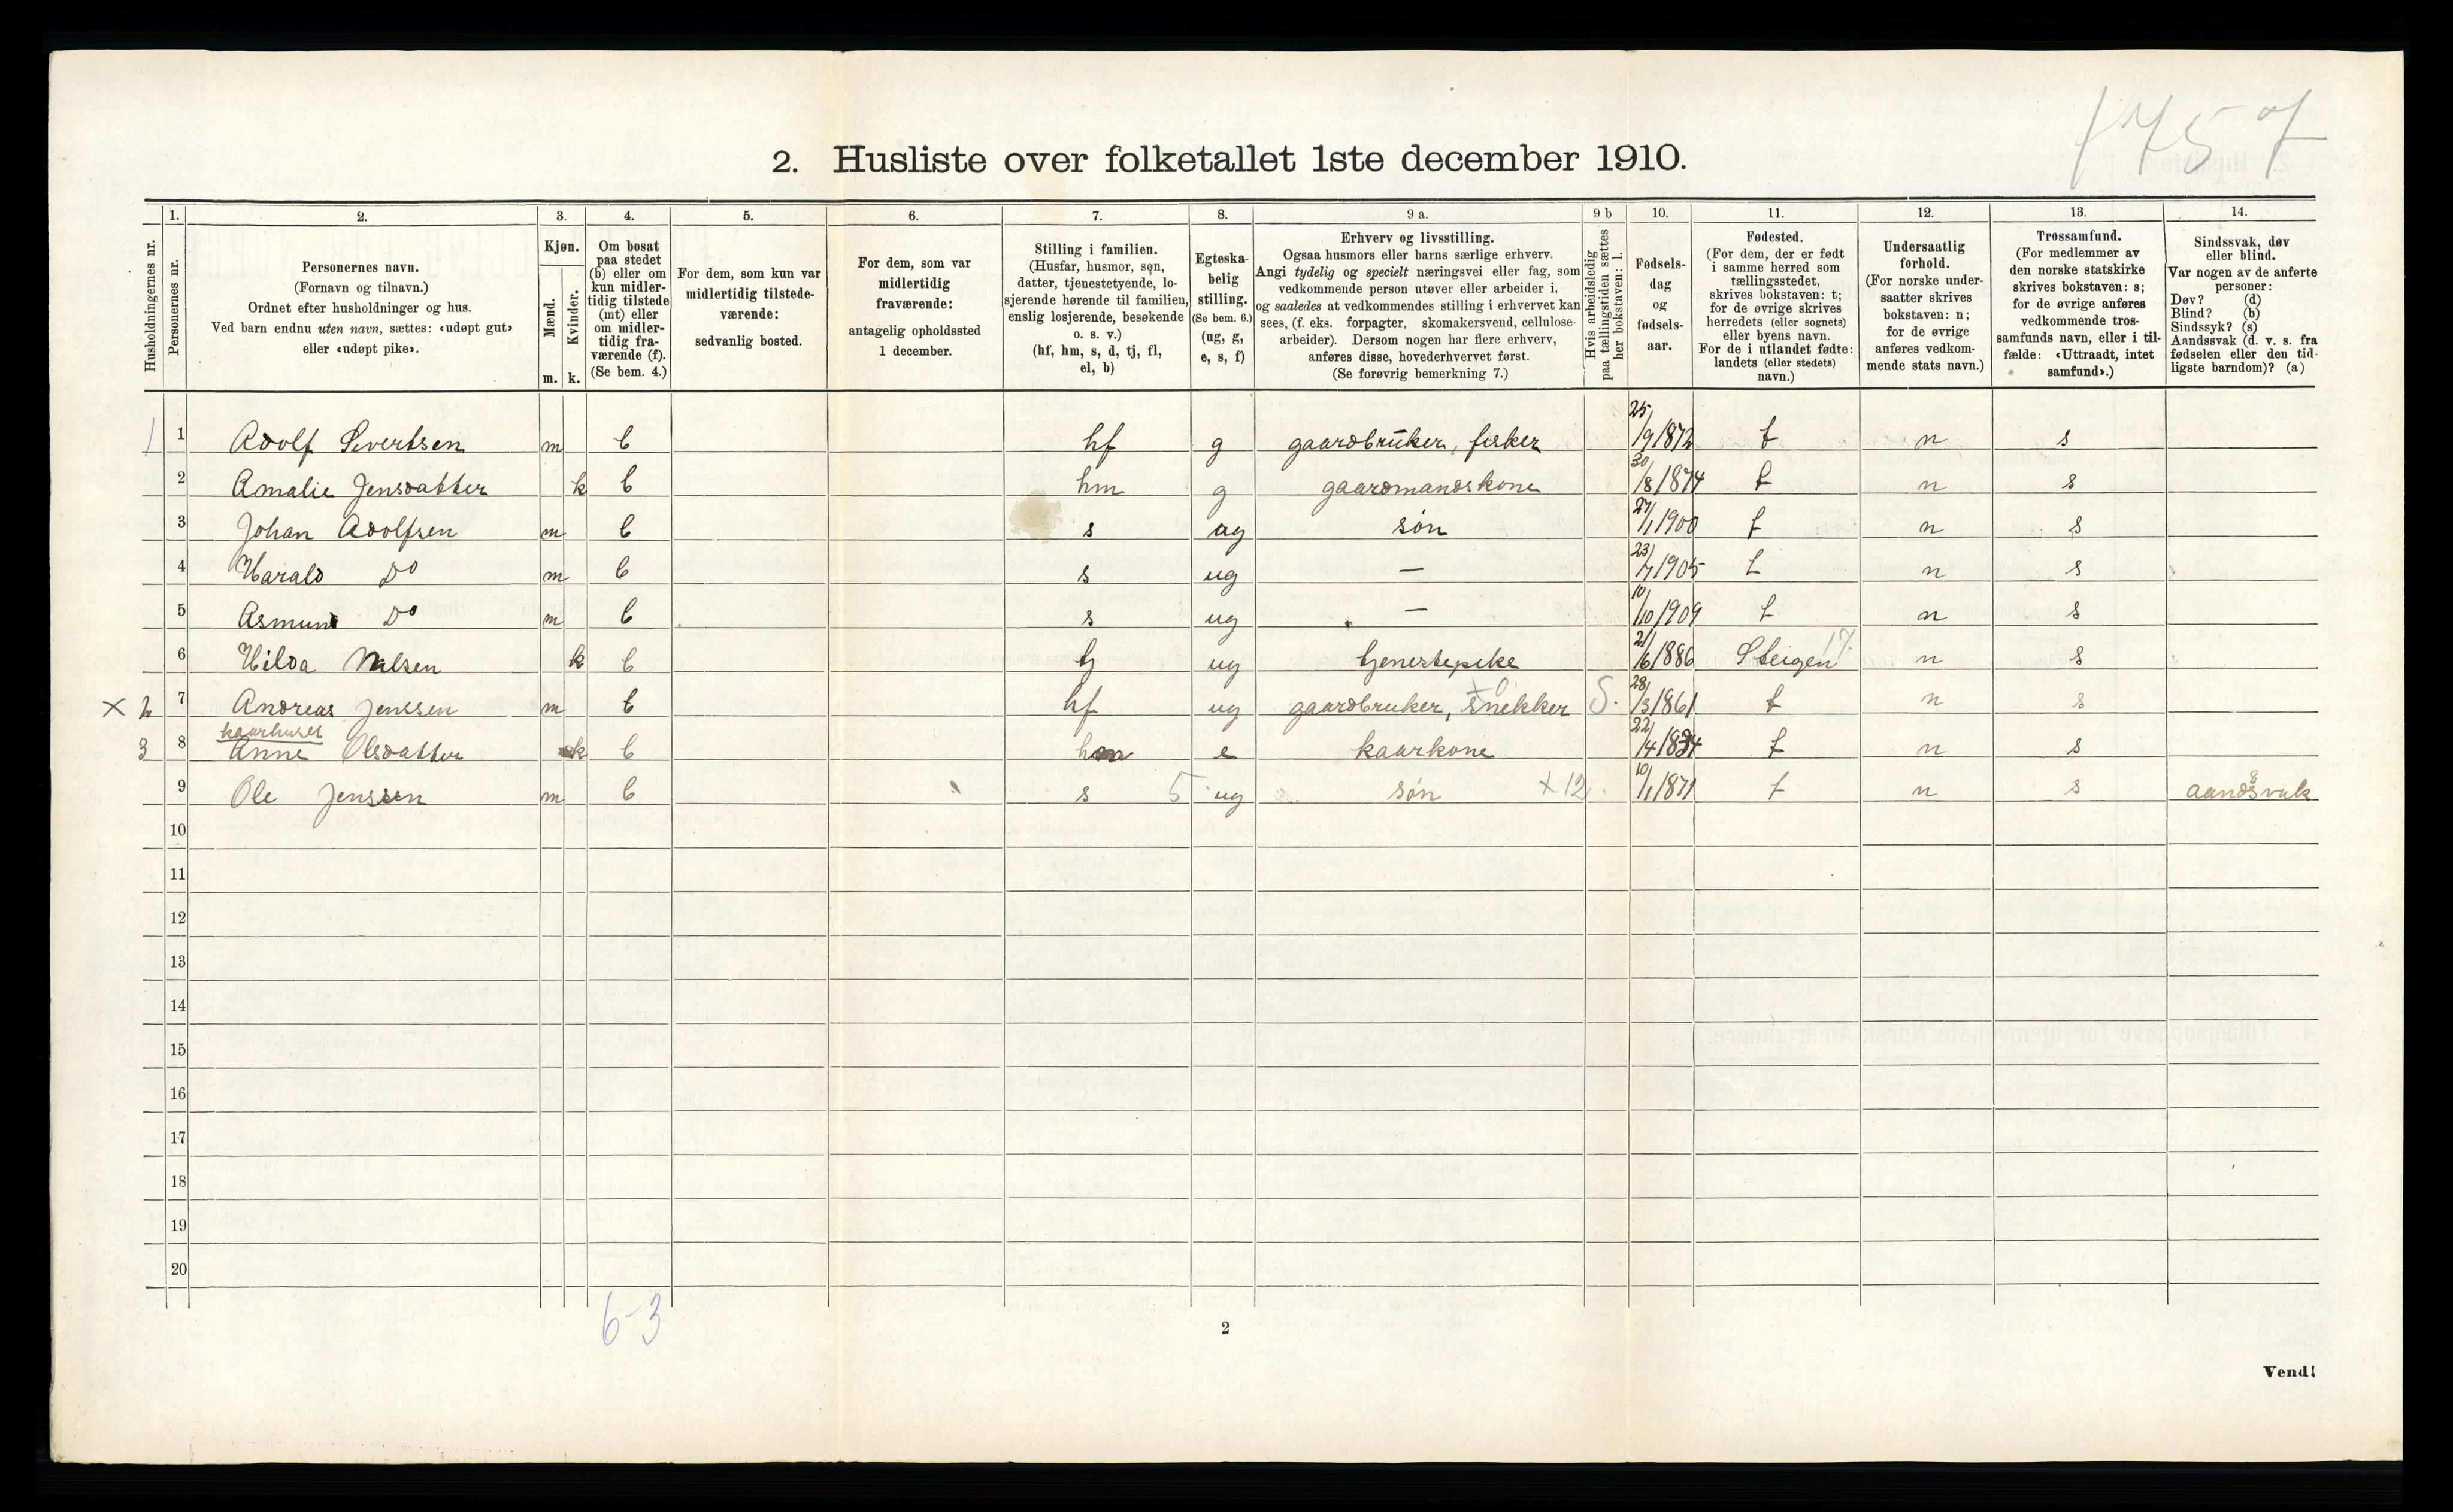 1757
2. Husliste over folketallet 1ste december 1910.
1. 2. 3. 4. 5. 6. 7. 8. 9 a. 9 b 10. 11. 12. 13. 14.
Husholdningernes nr.
Personernes nr.
Personernes navn.
(Fornavn og tilnavn.)
Ordnet efter husholdninger og hus.
Ved barn endnu uten navn, sættes: «udøpt gut»
eller «udøpt pike».
Kjøn.
Mænd.
Kvinder.
m. k.
Om bosat
paa stedet
(b) eller om
kun midler-
tidig tilstede
(mt) eller
om midler-
tidig fra-
værende (f).
(Se bem. 4.)
For dem, som kun var
midlertidig tilstede-
værende:
sedvanlig bosted.
For dem, som var
midlertidig
fraværende:
antagelig opholdssted
1 december.
Stilling i familien.
(Husfar, husmor, søn,
datter, tjenestetyende, lo-
sjerende hørende til familien,
enslig losjerende, besøkende
o. s. v.)
(hf, hm, s, d, tj, fl,
el, b)
Egteska-
belig
stilling.
(Se bem. 6.)
(ug, g,
e, s, f)
Erhverv og livsstilling.
Ogsaa husmors eller barns særlige erhverv.
Angi tydelig og specielt næringsvei eller fag, som
vedkommende person utøver eller arbeider i,
og saaledes at vedkommendes stilling i erhvervet kan
sees, (f. eks. forpagter, skomakersvend, cellulose-
arbeider). Dersom nogen har flere erhverv,
anføres disse, hovederhvervet først.
(Se forøvrig bemerkning 7.)
Hvis arbeidsledig
paa tællingstiden sættes
her bokstaven: l.
Fødsels-
dag
og
fødsels-
aar.
Fødested.
(For dem, der er født
i samme herred som
tællingsstedet,
skrives bokstaven: t;
for de øvrige skrives
herredets (eller sognets)
eller byens navn.
For de i utlandet fødte:
landets (eller stedets)
navn.)
Undersaatlig
forhold.
(For norske under-
saatter skrives
bokstaven: n;
for de øvrige
anføres vedkom-
mende stats navn.)
Trossamfund.
(For medlemmer av
den norske statskirke
skrives bokstaven: s;
for de øvrige anføres
vedkommende tros-
samfunds navn, eller i til-
fælde: «Uttraadt, intet
samfund».)
Sindssvak, døv
eller blind.
Var nogen av de anførte
personer:
Døv? (d)
Blind? (b)
Sindssyk? (s)
Aandssvak (d. v. s. fra
fødselen eller den tid-
ligste barndom)? (a)
1 1 Adolf Sivertsen m b hf g gaardbruker, fisker 25/9 1872 t n s
2 Amalie Jensdatter k b hm g gaardmandskone 30/8 1874 t n s
3 Johan Adolfsen m b s ug søn 27/1 1900 t n s
4 Harald Do m b s ug — 23/7 1905 t n s
5 Asmund Do m b s ug — 10/10 1909 t n s
6 Hilda Nilsen k b tj ug tjenestepike 21/6 1886 Steigen 17 n s
× 2 7 Andreas Jenssen m b hf ug gaardbruker, snekker S. 28/3 1861 t n s
kaarhuset
3 8 Anne Olsdatter k b e kaarkone 22/4 1834 t n s
9 Ole Jenssen m b s 5 ug søn ×12 10/1 1871 t n s aandssvak
10
11
12
13
14
15
16
17
18
19
20
6-3
2
Vend!